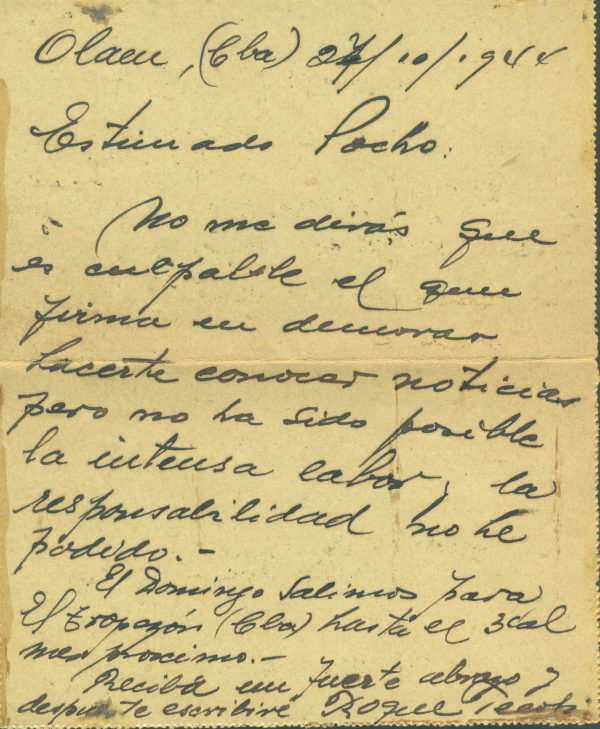 Olaen, (Cba) 27/10/1944
Estimado Pocho:
No me dirás que
es culpable el que
firma en demorar
hacerte conocer noticias
pero no ha sido posible
la intensa labor, la
responsabilidad no he
podido.-
El Domingo salimos para
El tropezón (Cba) hasta el 3 al
mes proximo.-
Recibá un fuerte abrazo y
despues te escribiré Roque